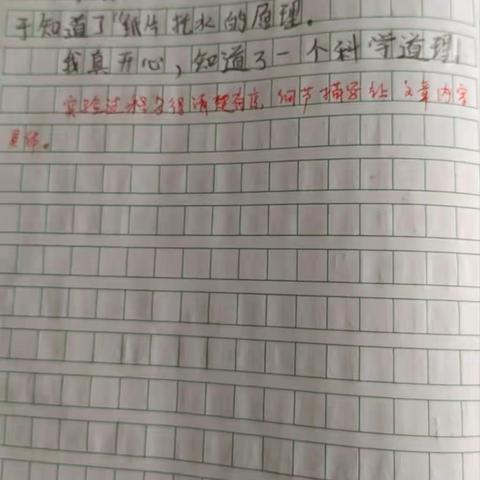 于知道了“纸片托水的原理。
我真开心，知道了一个科学道理，
实验过程写得清楚有序，细节描写让文章内容
具体。